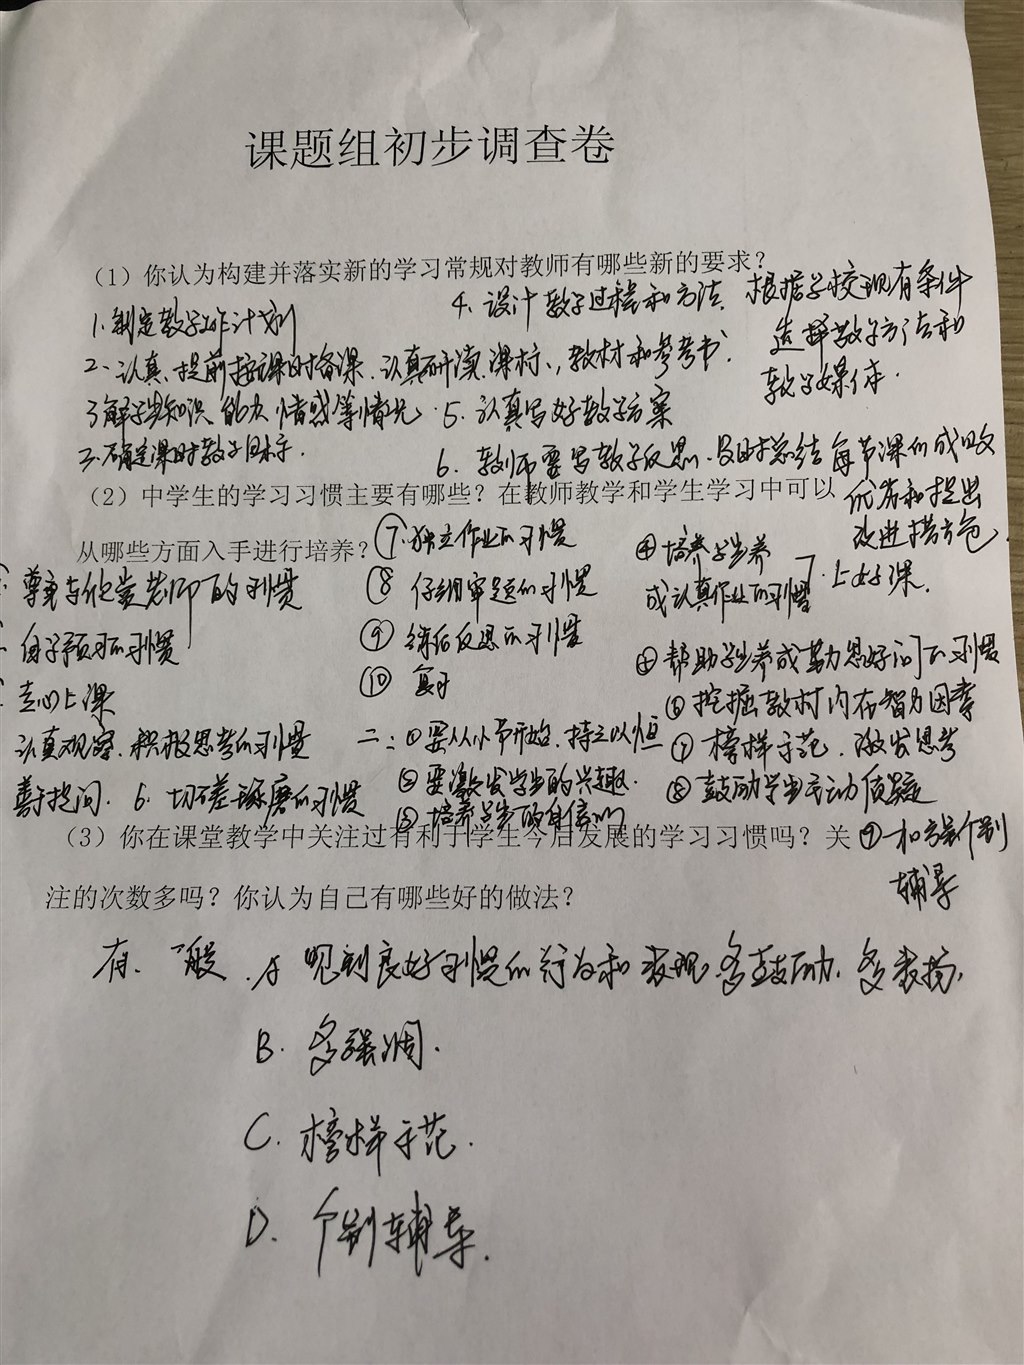 课题组初步调查卷
(1)你认为构建并落实新的学习常规对教师有哪些新的要求?
1.制定教学工作计划
2、认真、提前按课时备课.认真研读.课标、教材和参考书.
了解学生知识、能力、情感等情况.
3.确定课时教学目标.
4.设计教学过程和方法. 根据学校现有条件
选择教学方法和
教学媒体.
5.认真写好教学方案
6.教师要写教学反思.及时总结每节课的成败
优劣和提出
改进措施.
(2)中学生的学习习惯主要有哪些?在教师教学和学生学习中可以
从哪些方面入手进行培养?
尊重与你老师的习惯
自学预习的习惯
走心上课
认真观察.积极思考的习惯
善于提问. 6.切磋琢磨的习惯
⑦.独立作业的习惯
⑧ 仔细审题的习惯
⑨ 练后反思的习惯
⑩ 复习
二:①要从小节开始.持之以恒
②要激发学生的兴趣.
③培养学生的自信心
④培养学生养
成认真作业的习惯
上好课.
帮助学生养成勤思好问的习惯
⑥挖掘教材内在智力因素
⑦榜样示范.激发思考
⑧鼓励学生主动质疑
⑨加强个别
辅导
(3)你在课堂教学中关注过有利于学生今后发展的学习习惯吗?关
注的次数多吗?你认为自己有哪些好的做法?
有. 一般. A 见到良好习惯的行为和表现.多鼓励.多表扬.
B. 多强调.
C. 榜样示范.
D. 个别辅导.